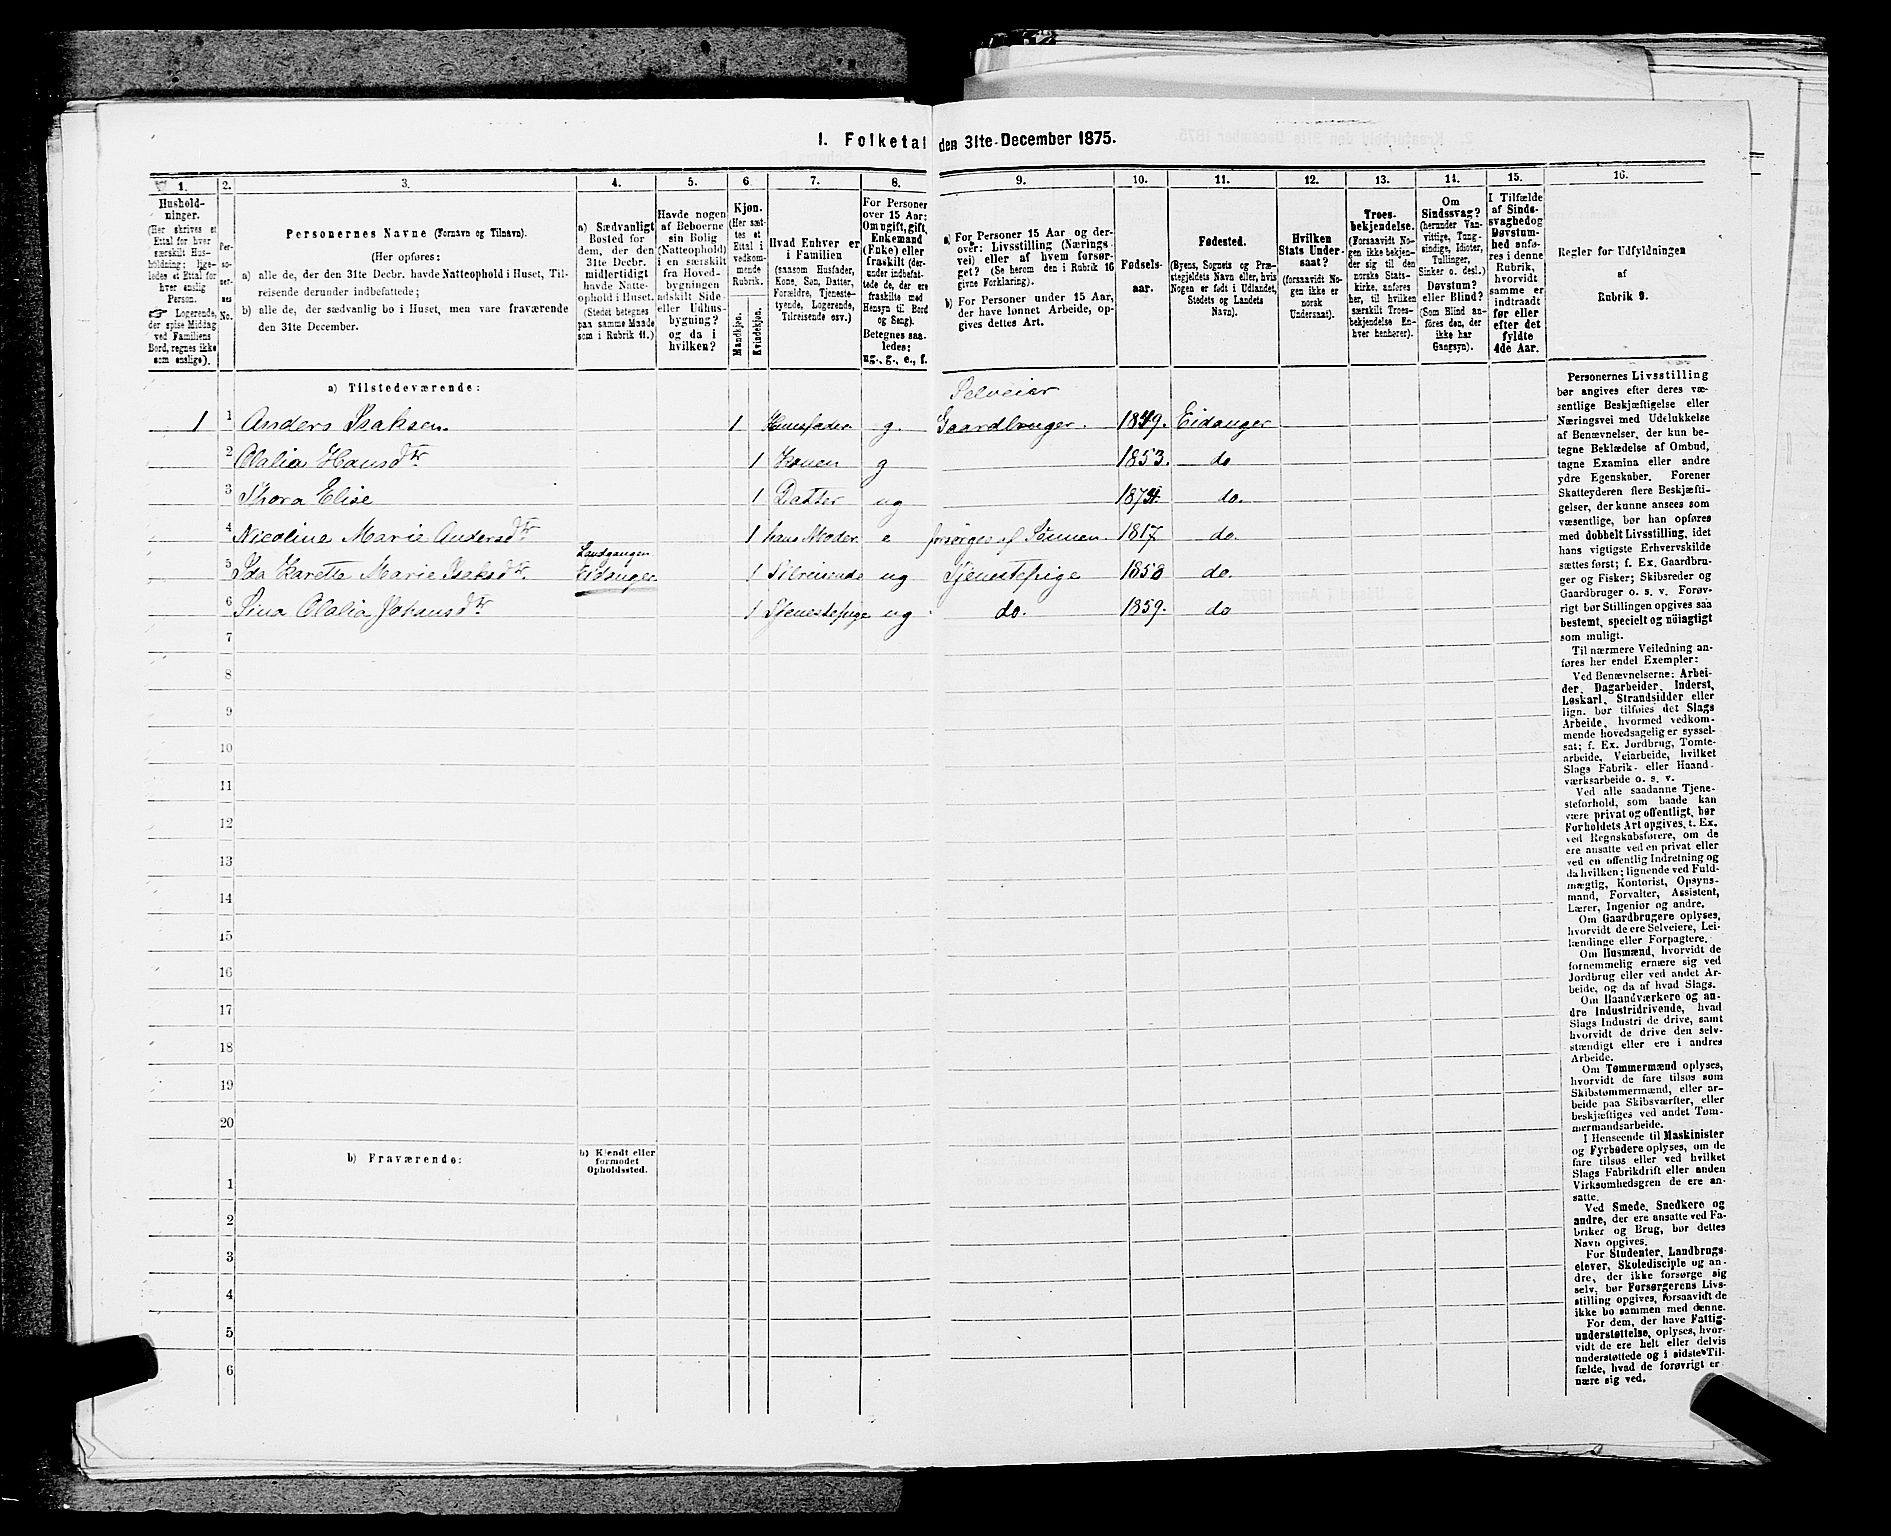 1. Folketal den 31te December 1875.
1. 2. 3. 4. 5. 6. 7. 8. 9. 10. 11. 12. 13. 14. 15. 16.
Hushold-
ninger.
(Her skrives et
Ettal for hver
særskilt Hus-
holdning; lige-
ledes et Ettal for
hver enslig
Person.
☞ Logerende,
der spise Middag
ved Familiens
Bord, regnes ikke
som enslige).
Per-
so-
ner-
nes
No.
Personernes Navne (Fornavn og Tilnavn).
(Her opføres:
a) alle de, der den 31te Decbr. havde Natteophold i Huset, Til-
reisende derunder indbefattede;
b) alle de, der sædvanlig bo i Huset, men vare fraværende
den 31te December.
a) Sædvanligt
Bosted for
dem, der den
31te Decbr.
midlertidigt
havde Natte-
ophold i Huset.
(Stedet betegnes
paa samme Maade
som i Rubrik 11.)
Havde nogen
af Beboerne
sin Bolig
(Natteophold)
i en særskilt
fra Hoved-
bygningen
adskilt Side-
eller Udhus-
bygning?
og da i
hvilken?
Kjøn.
(Her sæt-
tes et
Ettal i
vedkom-
mende
Rubrik.
Mandkjøn.
Kvindekjøn.
Hvad Enhver er
i Familien
(saasom Husfader,
Kone, Søn, Datter,
Forældre, Tjeneste-
tyende, Logerende,
Tilreisende osv.)
For Personer
over 15 Aar:
Om ugift, gift,
Enkemand
(Enke) eller
fraskilt (der-
under indbefat-
tede de, der ere
fraskilte med
Hensyn til Bord
og Seng).
Betegnes saa-
ledes:
ug., g., e., f.
a) For Personer 15 Aar og der-
over: Livsstilling (Nærings-
vei) eller af hvem forsør-
get? (Se herom den i Rubrik 16
givne Forklaring).
b) For Personer under 15 Aar,
der have lønnet Arbeide, op-
gives dettes Art.
Fødsels-
aar.
Fødested.
(Byens, Sognets og Præ-
stegjeldets Navn eller, hvis
Nogen er født i Udlandet,
Stedets og Landets
Navn).
Hvilken
Stats Under-
saat?
(forsaavidt No-
gen ikke er
norsk
Undersaat).
Troes-
bekjendelse.
(Forsaavidt No-
gen ikke bekjen-
der sig til den
norske Stats-
kirke, anføres
her, til hvilken
særskilt Troes-
bekjendelse En-
hver henhører).
Om
Sindssvag?
(herunder Van-
vittige, Tung-
sindige, Idioter,
Tullinger,
Sinker o. desl.)
Døvstum?
eller Blind?
(Som Blind an-
føres den, der
ikke har
Gangsyn).
I Tilfælde
af Sinds-
svaghed og
Døvstum-
hed anfø-
res i denne
Rubrik,
hvorvidt
samme er
indtraadt
før eller
efter det
fyldte
4de Aar.
Regler for Udfyldningen
af
Rubrik 9.
a) Tilstedeværende:
Selveier
1 1 Anders Isaksen. 1 Husfader g. Gaardbruger. 1849. Eidanger
2 Olalia Hansdtr 1 Konen g 1853. do
3 Thora Elise 1 Datter ug 1874. do.
4 Nicoline Marie Andersdtr 1 hans Moder e forsørges af Sønnen. 1817 do.
5 Ida Karette Marie Isaksdtr. Landgangen Eidanger 1 Tilreisende ug Tjenestepige 1850 do.
6 Sina Olalia Johansdtr 1 Tjenestepige ug do. 1859. do
7
8
9
10
11
12
13
14
15
16
17
18
19
20
b) Fraværende: b) Kjendt eller
formodet
Opholdssted.
1
2
3
4
5
6
Personernes Livsstilling
bør angives efter deres væ-
sentlige Beskjæftigelse eller
Næringsvei med Udelukkelse
af Benævnelser, der kun be-
tegne Beklædelse af Ombud,
tagne Examina eller andre
ydre Egenskaber. Forener
Skatteyderen flere Beskjæfti-
gelser, der kunne ansees som
væsentlige, bør han opføres
med dobbelt Livsstilling, idet
hans vigtigste Erhvervskilde
sættes først; f. Ex. Gaardbru-
ger og Fisker; Skibsreder og
Gaardbruger o. s. v. Forøv-
rigt bør Stillingen opgives saa
bestemt, specielt og nöiagtigt
som muligt.
Til nærmere Veiledning an-
føres her endel Exempler:
Ved Benævnelserne: Arbei-
der, Dagarbeider, Inderst,
Løskarl, Strandsidder eller
lign. bør tilføies det Slags
Arbeide, hvormed vedkom-
mende hovedsagelig er syssel-
sat; f. Ex. Jordbrug, Tomte-
arbeide, Veiarbeide, hvilket
Slags Fabrik- eller Haand-
værksarbeide o. s. v.
Ved alle saadanne Tjene-
steforhold, som baade kan
være privat og offentligt, bør
Forholdets Art opgives, t. Ex.
ved Regnskabsførere, om de
ere ansatte ved en privat eller
ved en offentlig Indretning og
da hvilken; lignende ved Fuld-
mægtig, Kontorist, Opsyns-
mand, Forvalter, Assistent,
Lærer, Ingeniør og andre.
Om Gaardbrugere oplyses,
hvorvidt de ere Selveiere, Lei-
lændinge eller Forpagtere.
Om Husmænd, hvorvidt de
fornemmelig ernære sig ved
Jordbrug eller ved andet Ar-
beide, og da af hvad Slags.
Om Haandværkere og an-
dre Industridrivende, hvad
Slags Industri de drive, samt
hvorvidt de drive den selv-
stændigt eller ere i andres
Arbeide.
Om Tømmermænd oplyses,
hvorvidt de fare tilsøs som
Skibstømmermænd, eller ar-
beide paa Skibsværfter, eller
beskjæftiges ved andet Tøm-
mermandsarbeide.
I Henseende til Maskinister
og Fyrbødere oplyses, om de
fare tilsøs eller ved hvilket
Slags Fabrikdrift eller anden
Virksomhedsgren de ere an-
satte.
Ved Smede, Snedkere og
andre, der ere ansatte ved Fa-
briker og Brug, bør dettes
Navn opgives.
For Studenter, Landbrugs-
elever, Skoledisciple og an-
dre, der ikke forsørge sig
selv, bør Forsørgerens Livs-
stilling opgives, forsaavidt de
ikke bo sammen med denne.
For dem, der have Fattig-
understøttelse, oplyses, hvor-
vidt de ere helt eller delvis
understøttede og i sidste Til-
fælde, hvad de forøvrigt er-
nære sig ved.